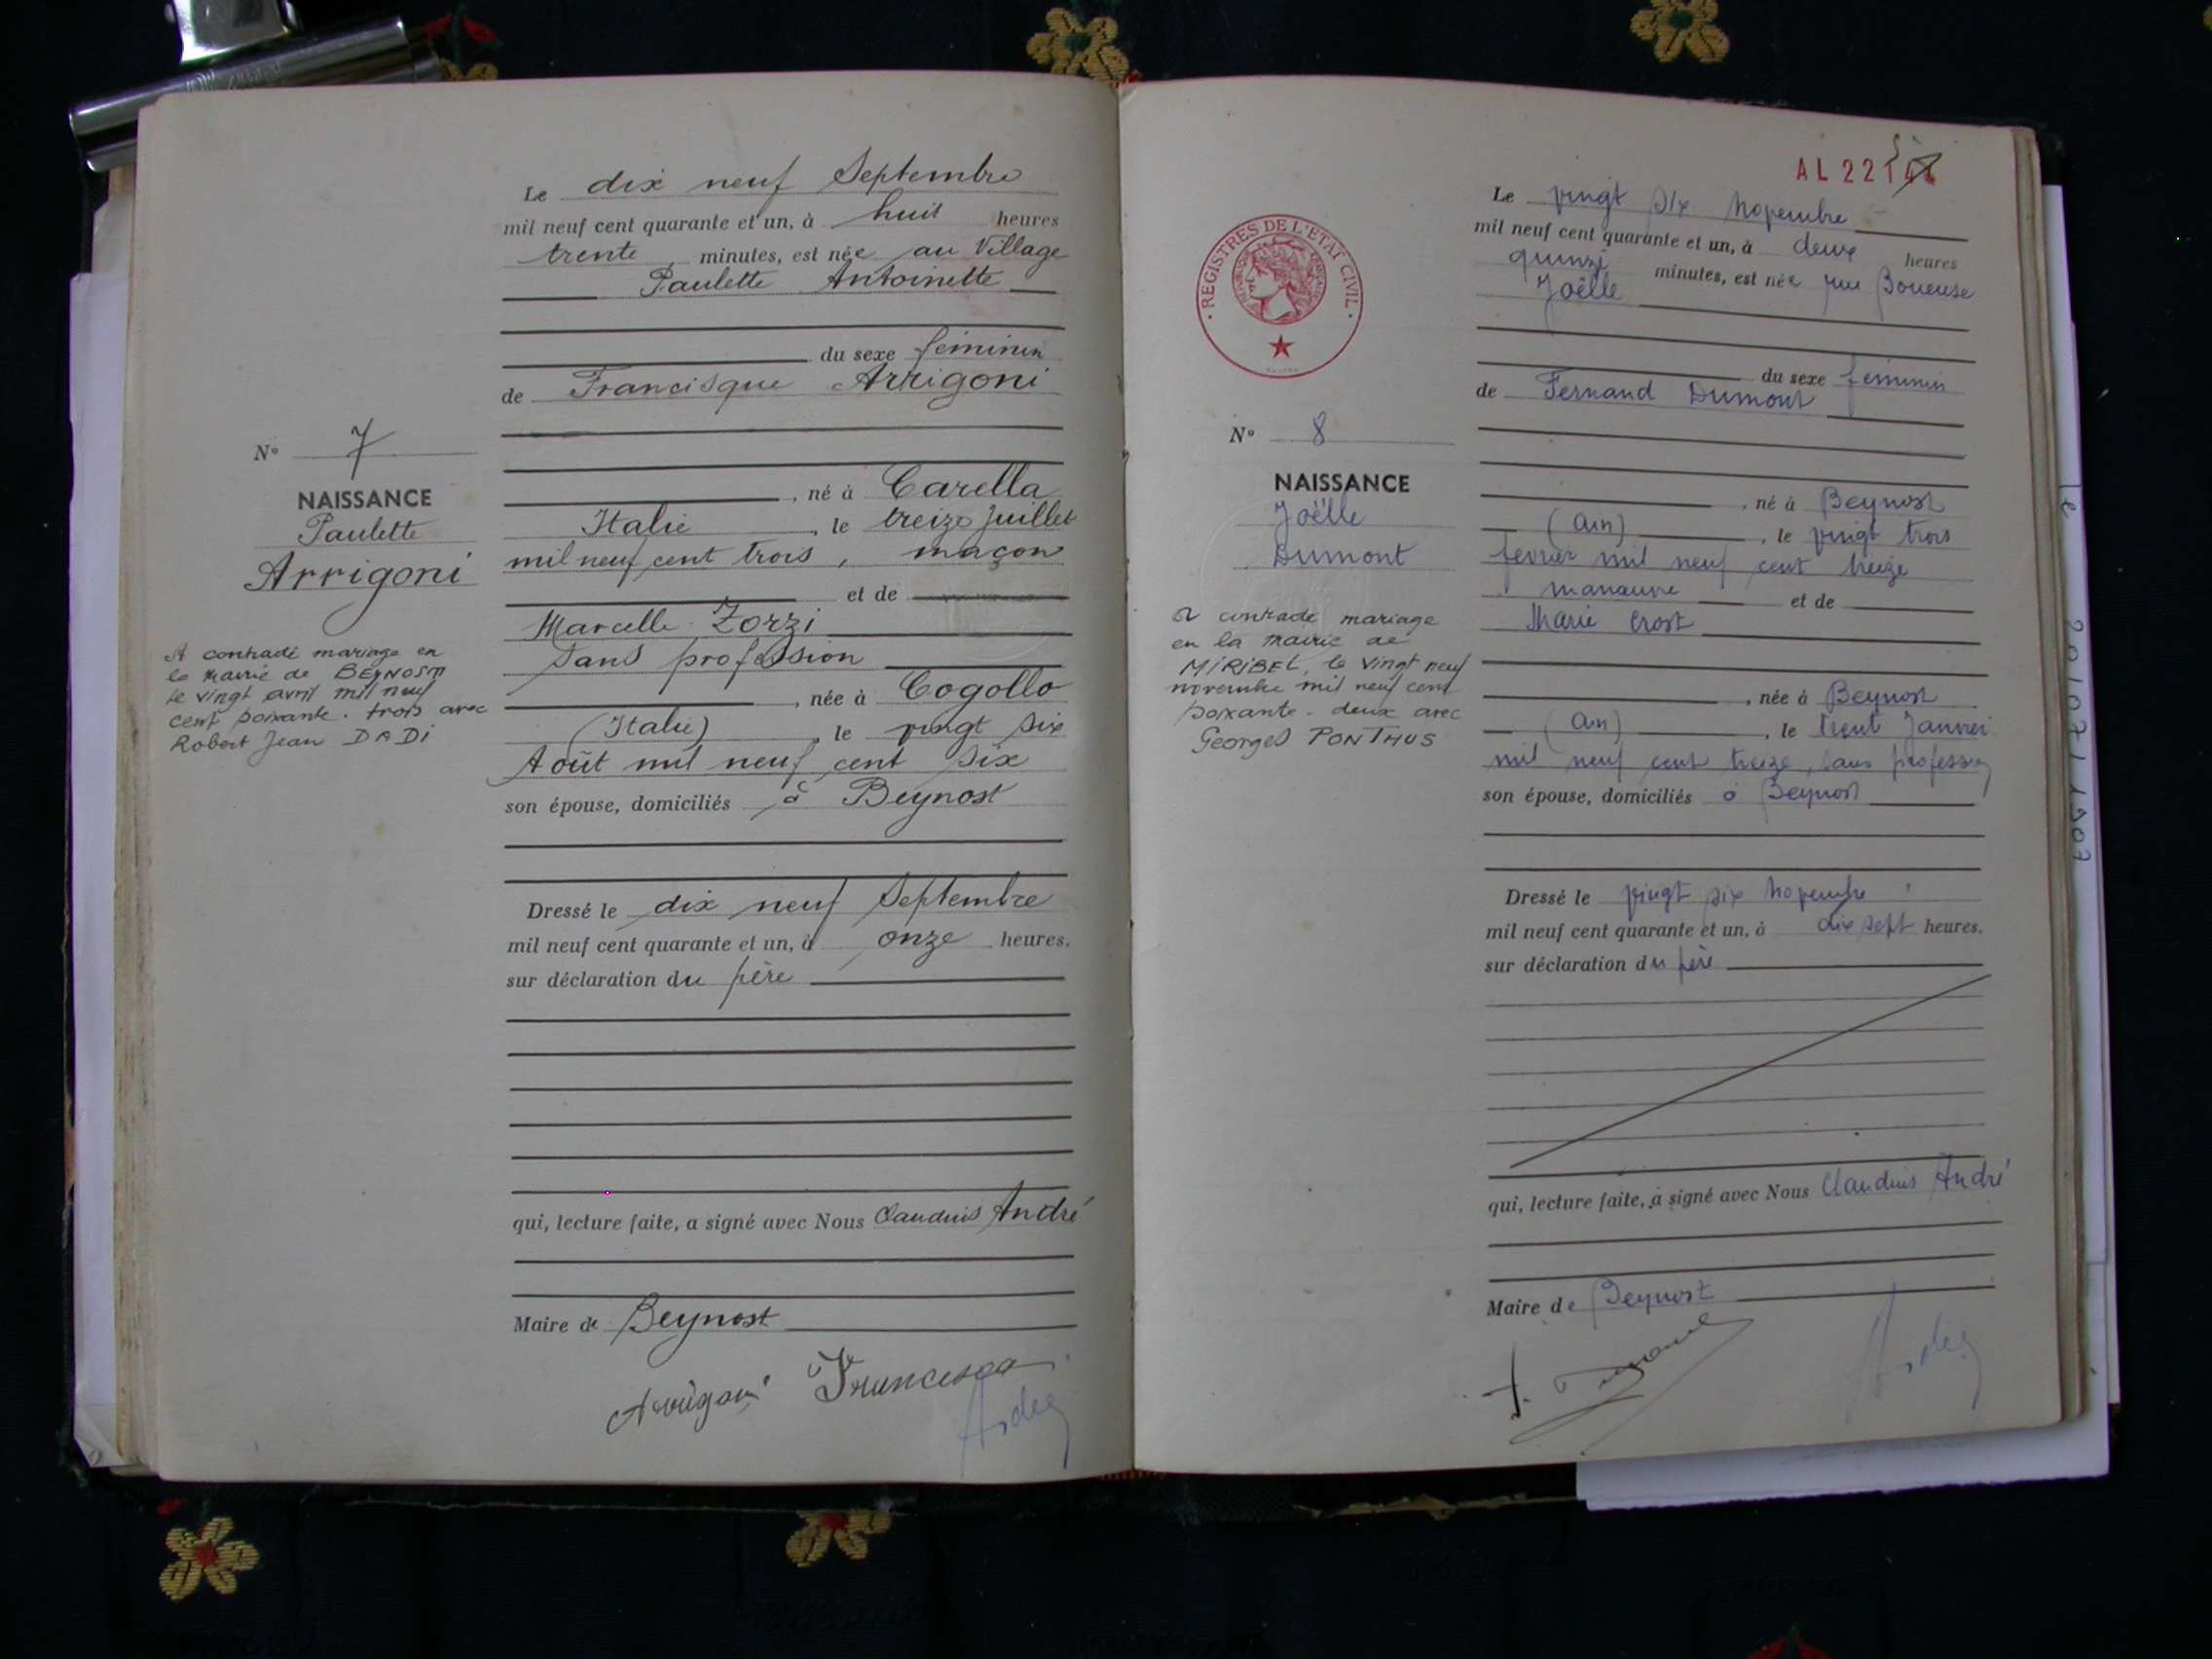 Le dix neuf Septembre
mil neuf cent quarante et un, à huit heures
trente minutes, est née au Village
Paulette Antoinette
du sexe féminin
de Francisque Arrigoni
N° 7
NAISSANCE
Paulette
Arrigoni
, né à Carella
Italie, le treize Juillet
mil neuf cent trois, maçon
et de
Marcelle Zorzi
sans profession
, née à Cogollo
(Italie), le vingt six
Août mil neuf cent six
son épouse, domiciliés à Beynost
A contracté mariage en
la mairie de BEYNOST
le vingt avril mil neuf
cent soixante-trois avec
Robert Jean DADI
Dressé le dix neuf Septembre
mil neuf cent quarante et un, à onze heures.
sur déclaration du père
qui, lecture faite, a signé avec Nous Claudius André
Maire de Beynost
Arrigoni Francesco
AL 22
Le vingt six Novembre
mil neuf cent quarante et un, à deux heures
quinze minutes, est née rue Boueuse
Joëlle
REGISTRES DE L'ÉTAT CIVIL
du sexe féminin
de Fernand Dumont
N° 8
NAISSANCE
Joëlle
Dumont
, né à Beynost
(Ain), le vingt trois
février mil neuf cent treize
manœuvre et de
Marie Crost
, née à Beynost
(Ain), le trent Janvier
mil neuf cent treize, sans profession
son épouse, domiciliés à Beynost
A contracté mariage
en la mairie de
MIRIBEL, le vingt neuf
novembre mil neuf cent
soixante-deux avec
Georges PONTHUS
Dressé le vingt six Novembre
mil neuf cent quarante et un, à dix sept heures.
sur déclaration du père
qui, lecture faite, a signé avec Nous Claudius André
Maire de Beynost